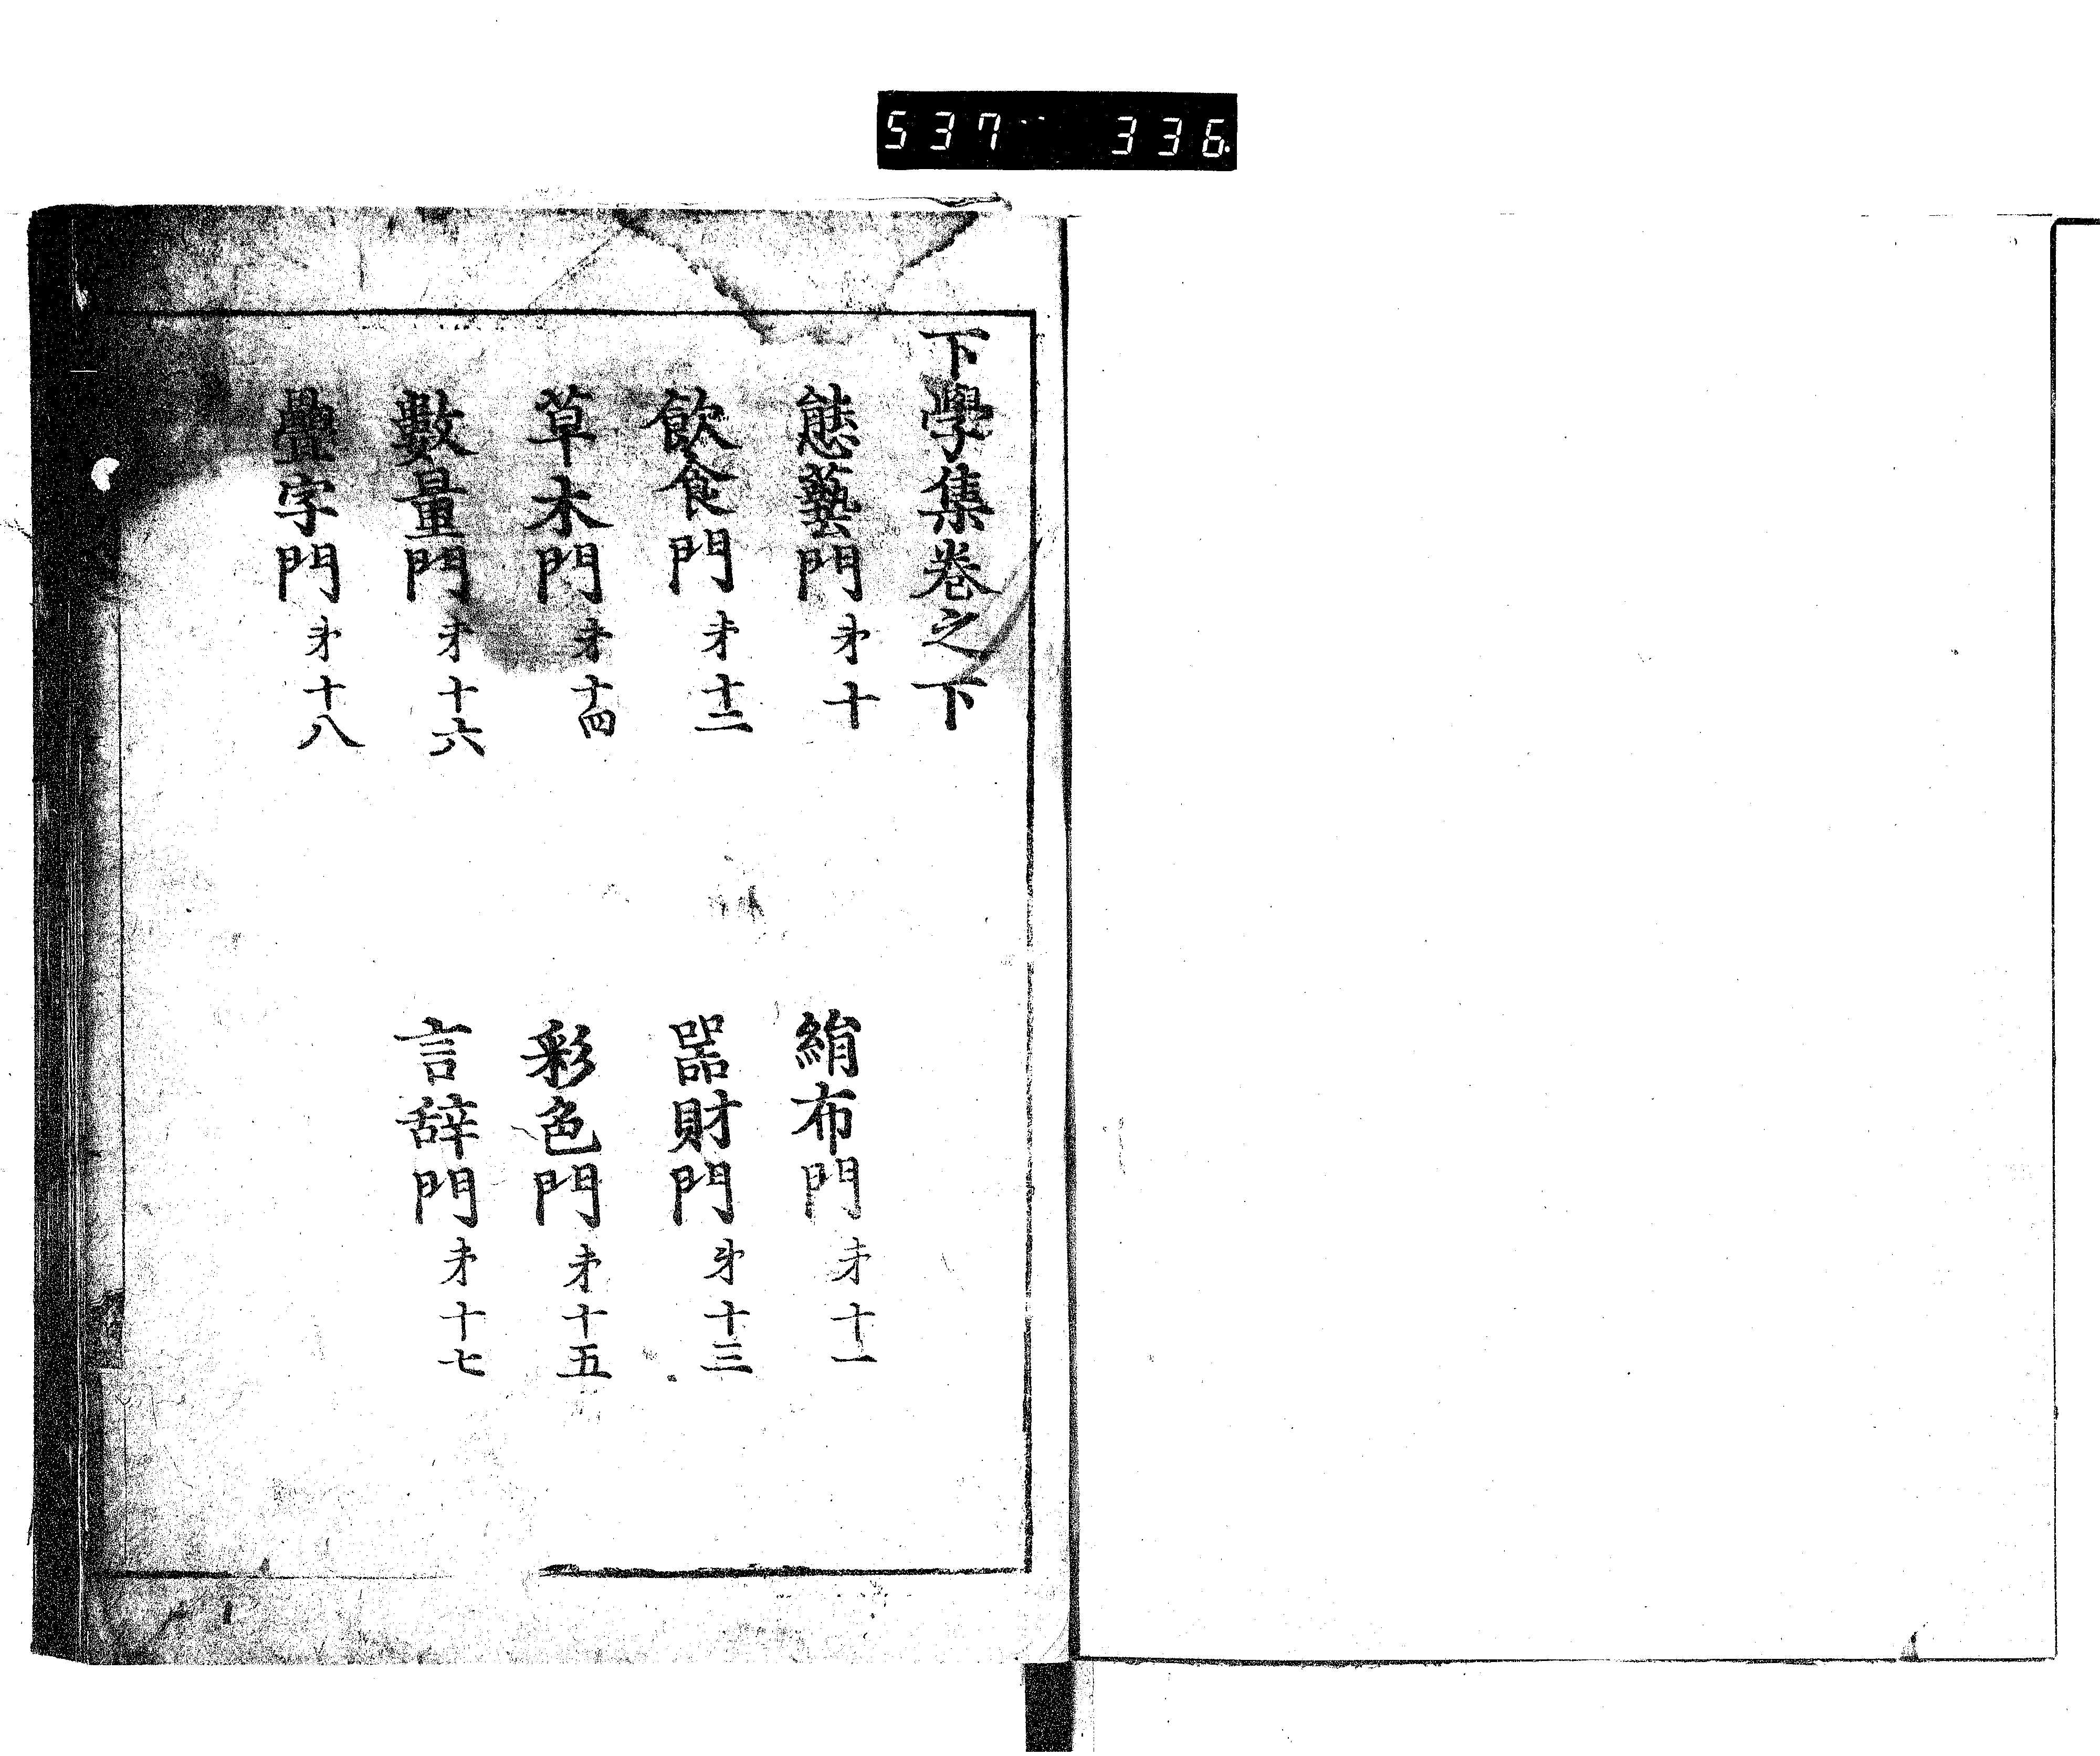 537 336
下學集卷之下
態藝門 才十 絹布門 才十一
飲食門 才十二 器財門 才十三
草木門 才十四 彩色門 才十五
數量門 才十六 言辞門 才十七
疊字門 才十八